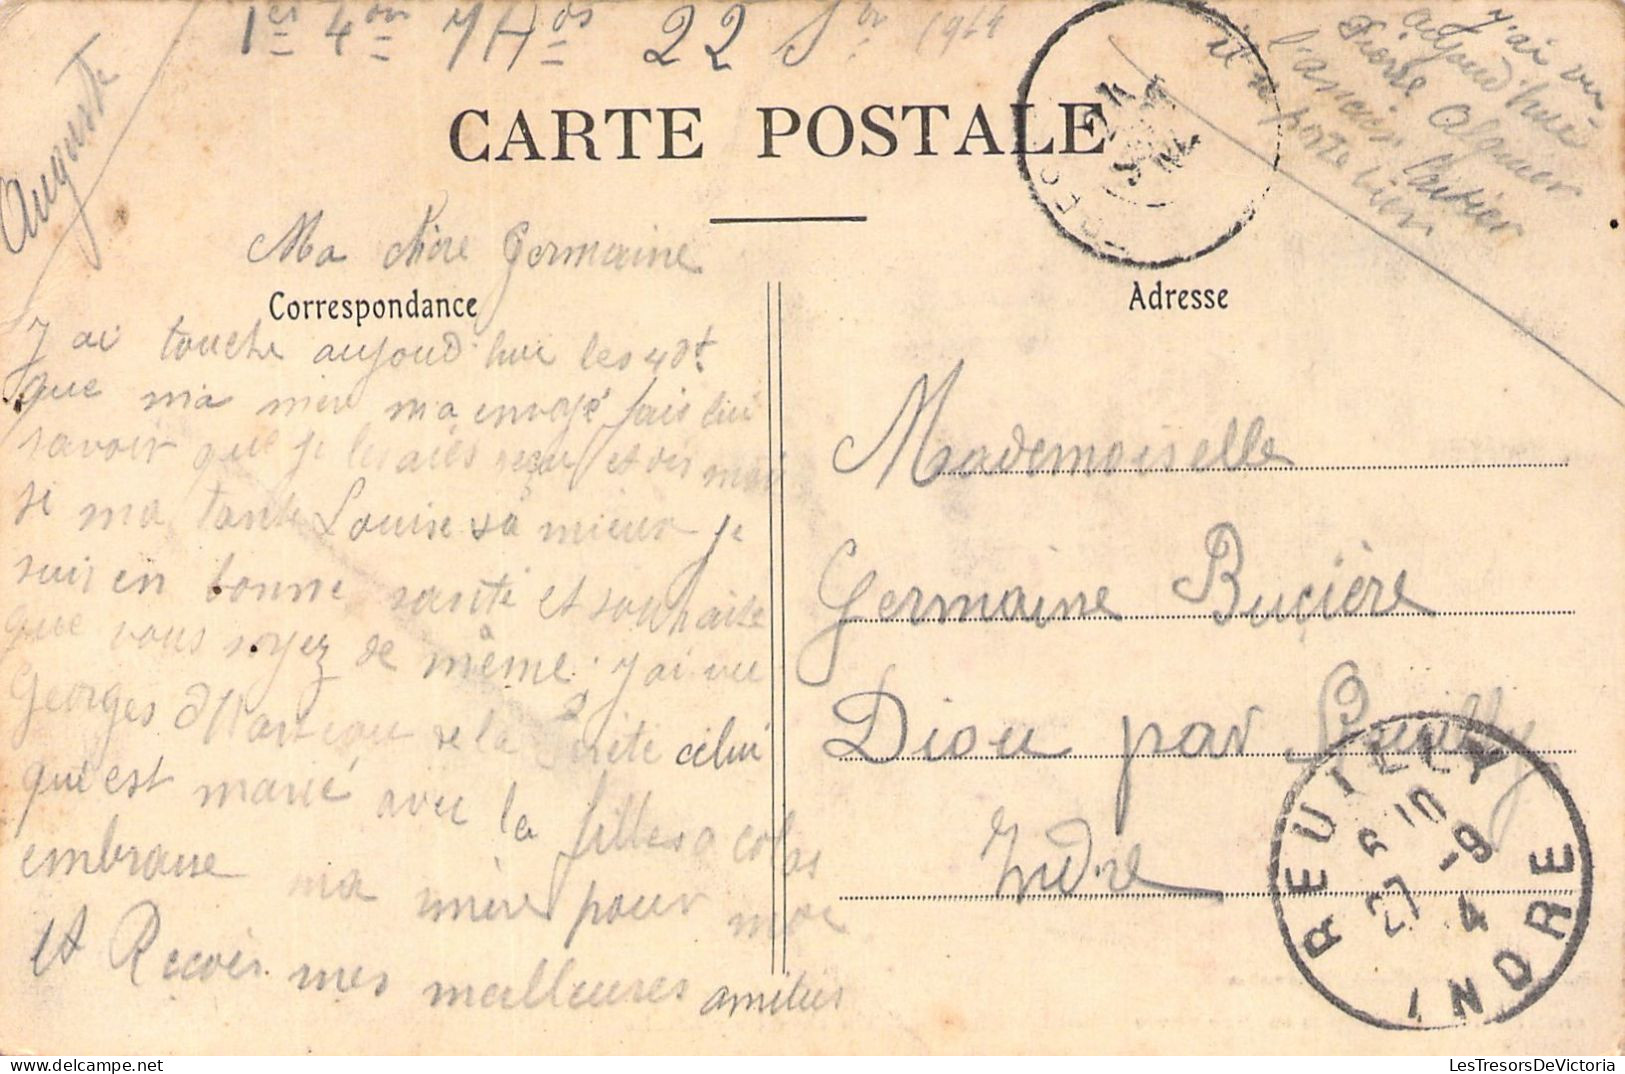 22 1914
J'ai vu
aujoud'hui
Pierre
l'ancien
il se porte bien
Auguste
CARTE POSTALE
Ma Chère Germaine
Correspondance
J ai touche aujoud hui les
que ma mère ma envoyé fais lui
savoir que je les aies reçu et dis moi
si ma tante Louise va mieux je
suis en bonne santé et souhaite
que vous soyez de même. J'ai vu
Georges de la celui
qui est marié avec la
embrasse ma mère pour moi
et Recois mes meilleures amitiés
Adresse
Mademoiselle
Germaine Bucière
Diou par Reuilly
Indre
REUILLY
27 -9
INDRE
LesTresorsDeVictoria